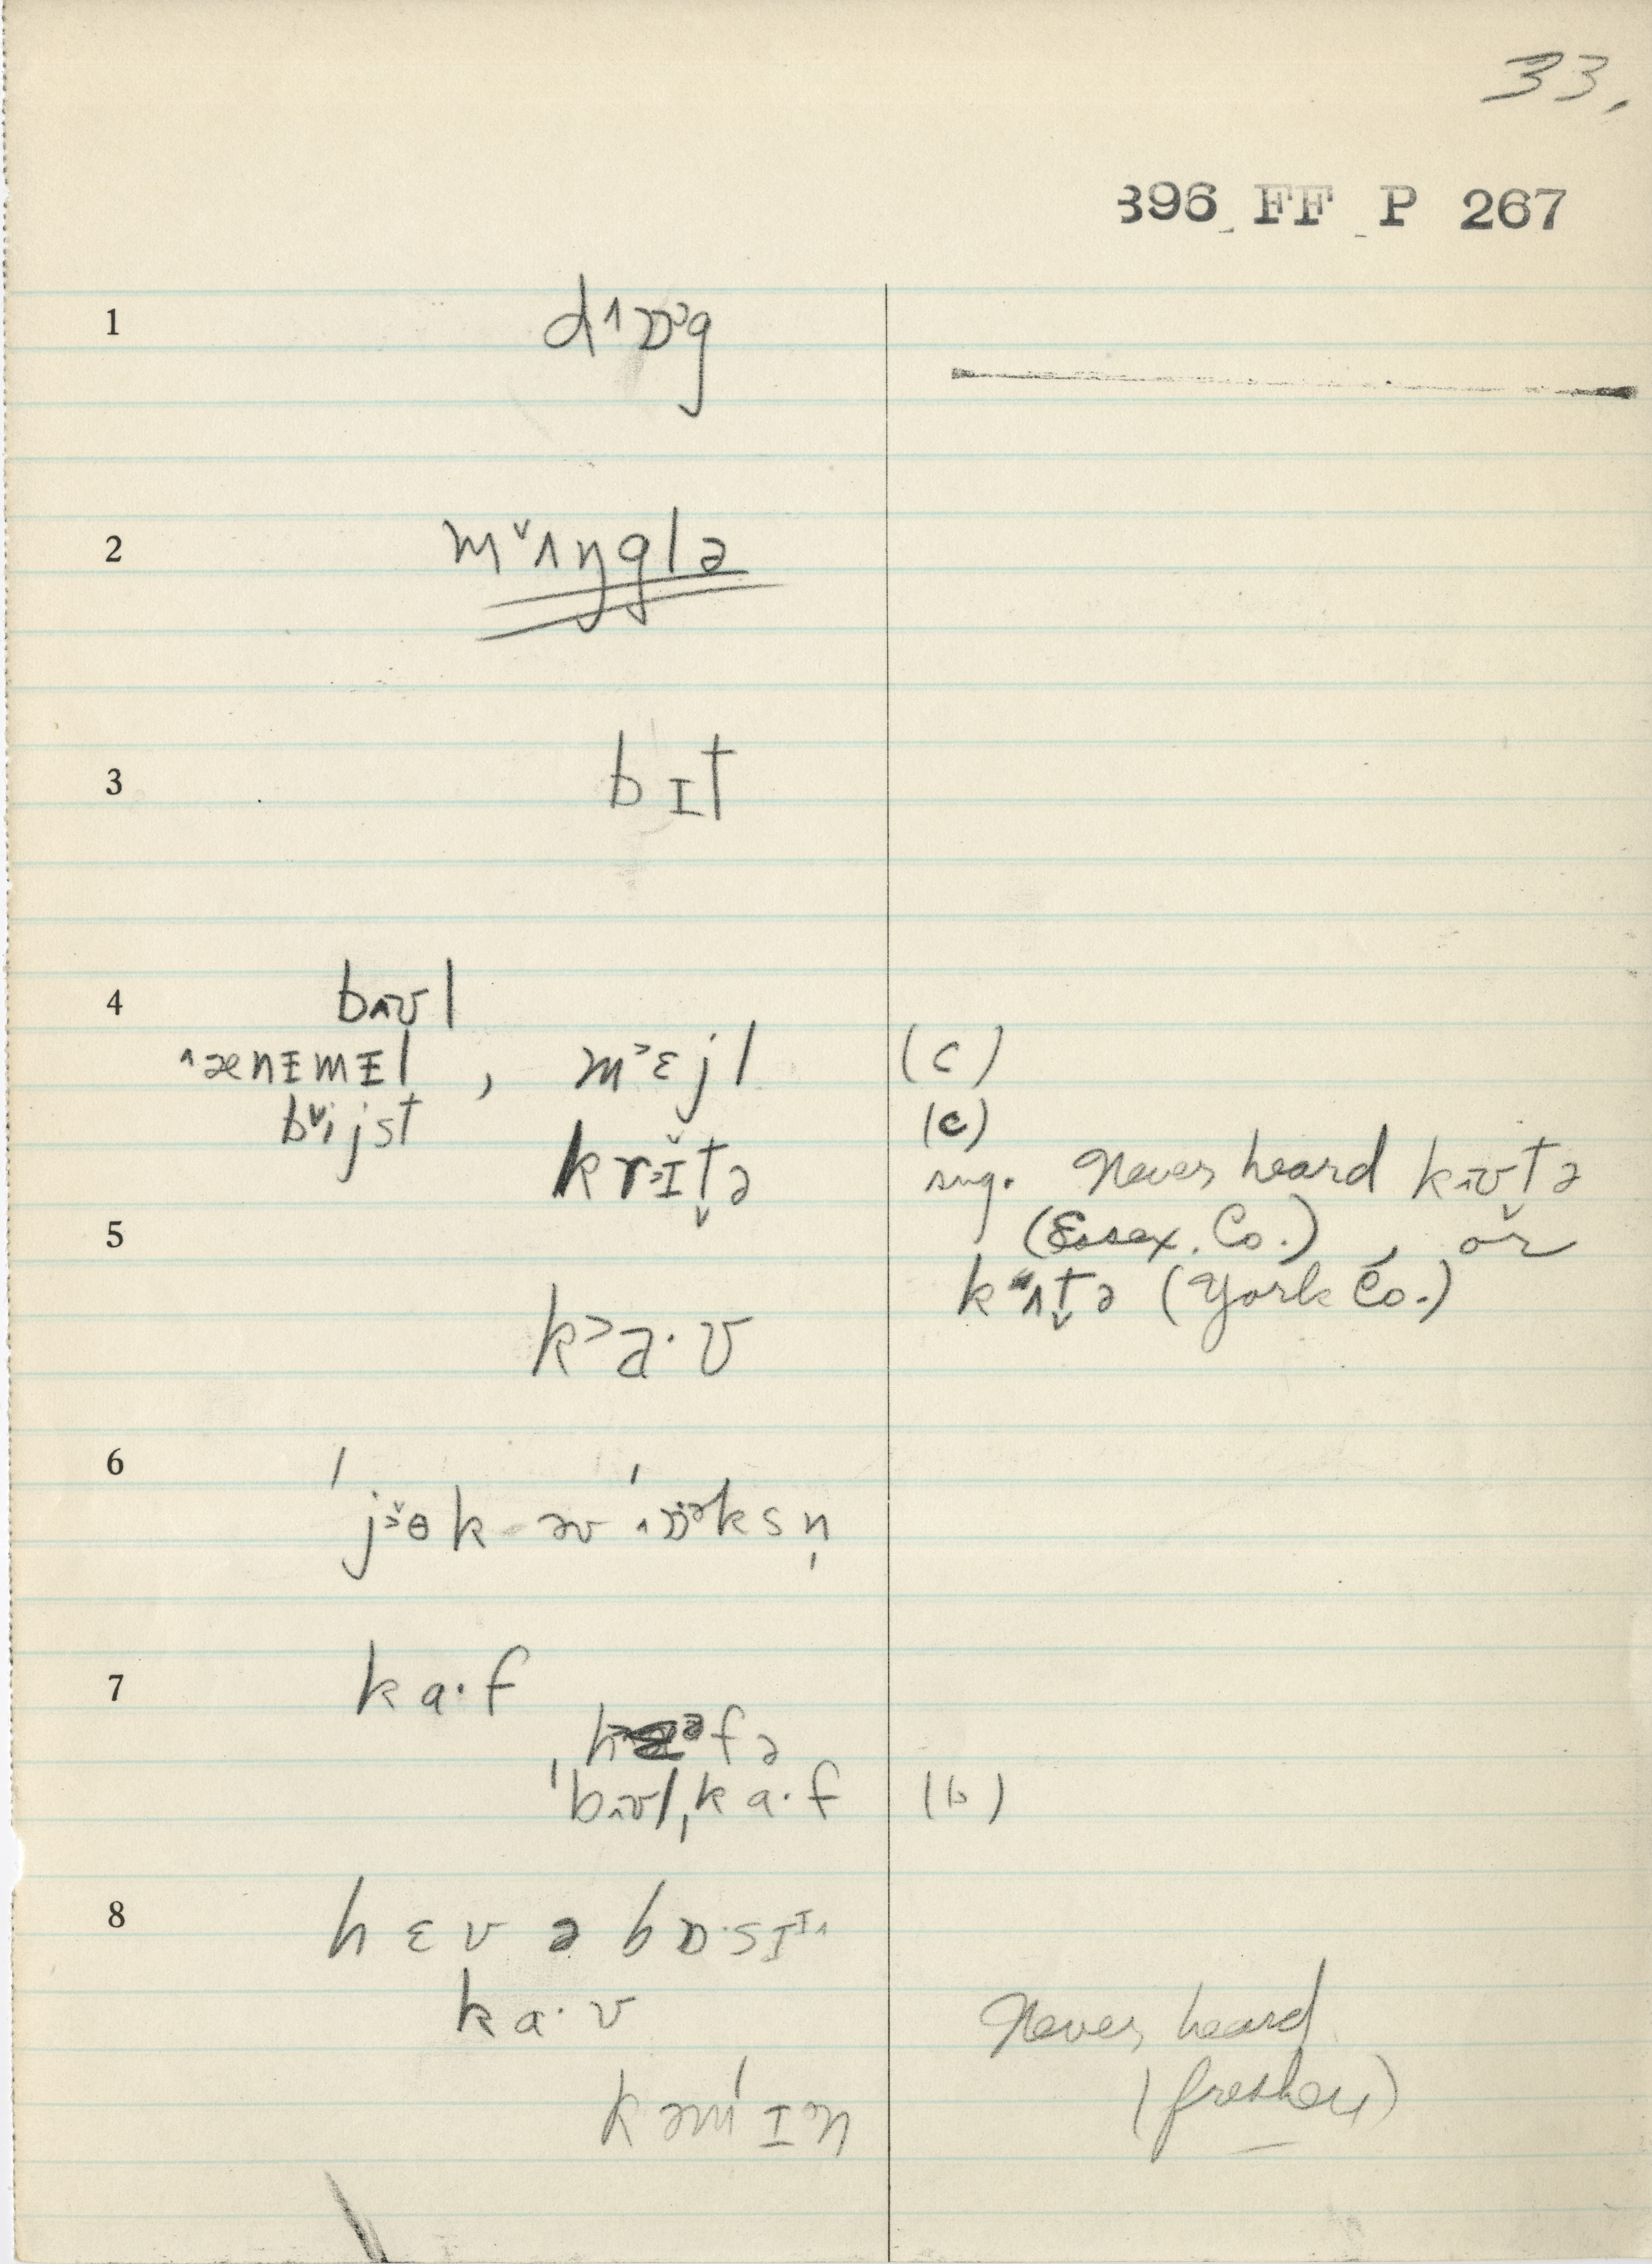 33.
396 FF P 267
1 d˄ɒɔg
2 m˅ʌŋglə
3 bɪt
4 bʌʊl
˄ænɨmɨl , m˃ɛjl (c)
b˅ijst (c)
krɪ̆t̬ə sug. Never heard kʌʊtə
5 (Essex Co.), or
kʌt̬ə (York Co.)
k˃a·ʊ
6 ˈjɵk əv ˈɒksn̩
7 ka·f
hfə
ˈbʌʊlˌka·f (b)
8 hɛv ə bɒ·sɪɪ˄
ka·ʊ Never heard
kəmˈɪn (freshen)